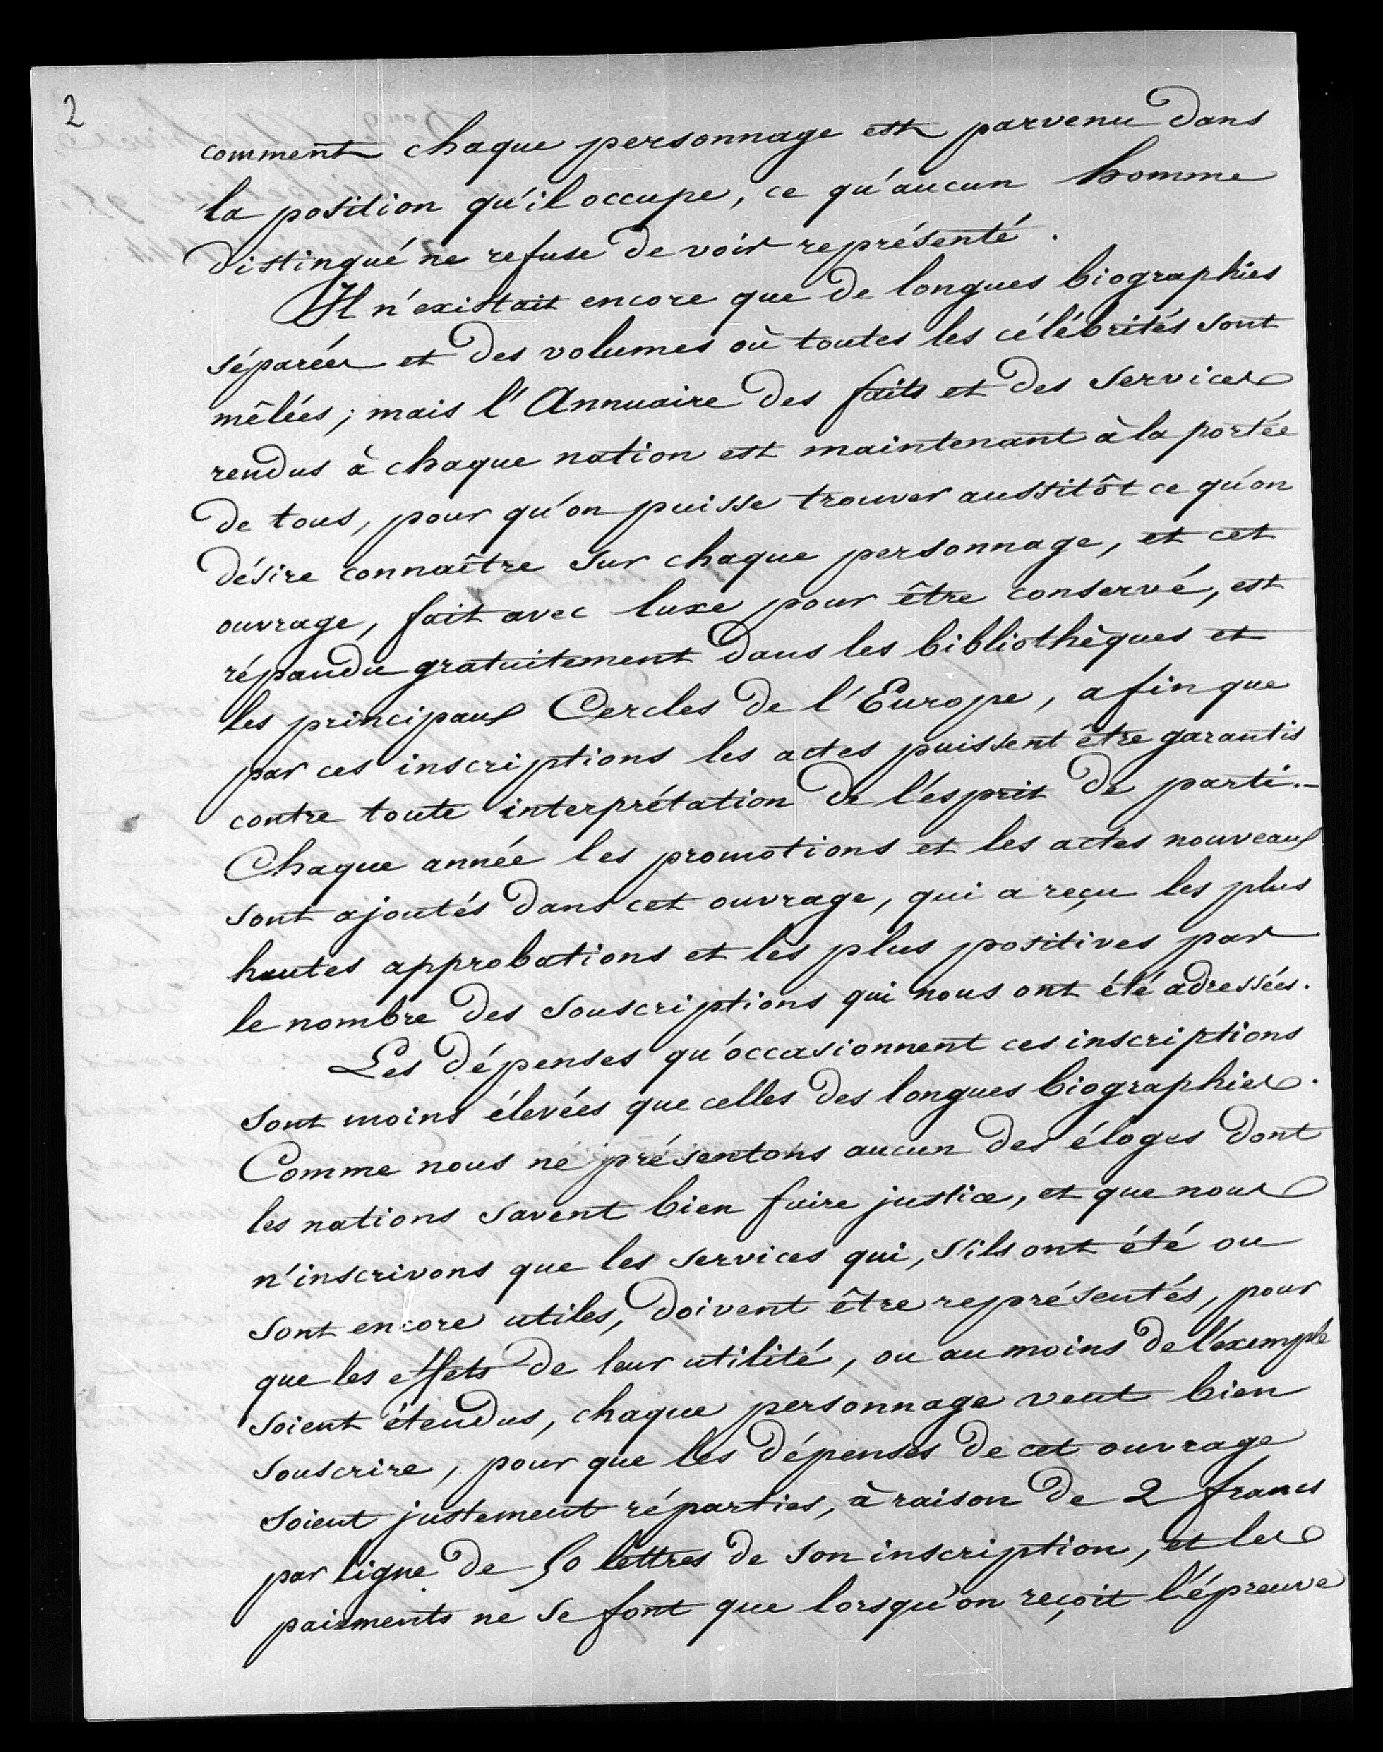 2
comment chaque personnage est parvenu dans
la position qu'il occupe, ce qu'aucun homme
distingué ne refuse de voir représenté.
Il n'existait encore que de longues biographies
séparées et des volumes où toutes les célébrités sont
mêlées; mais l'Annuaire des faits et des services
rendus à chaque nation est maintenant à la portée
de tous, pour qu'on puisse trouver aussitôt ce qu'on
désire connaître sur chaque personnage, et cet
ouvrage, fait avec luxe pour être conservé, est
répandu gratuitement dans les bibliothèques et
les principaux Cercles de l'Europe, afin que
par ces inscriptions les actes puissent être garantis
contre toute interprétation de l'esprit de parti.-
Chaque année les promotions et les actes nouveaux
sont ajoutés dans cet ouvrage, qui a reçu les plus
hautes approbations et les plus positives par
le nombre des souscriptions qui nous ont été adressées.
Les dépenses qu'occasionnent ces inscriptions
sont moins élevées que celles des longues biographies.
Comme nous ne présentons aucun des éloges dont
les nations savent bien faire justice, et que nous
n'inscrivons que les services qui, s'ils ont été ou
sont encore utiles, doivent être représentés, pour
que les effets de leur utilité, ou au moins de l'exemple
soient étendus, chaque personnage veut bien
souscrire, pour que les dépenses de cet ouvrage
soient justement réparties, à raison de 2 francs
par ligne de 50 lettres de son inscription, et les
paiements ne se font que lorsqu'on reçoit l'épreuve